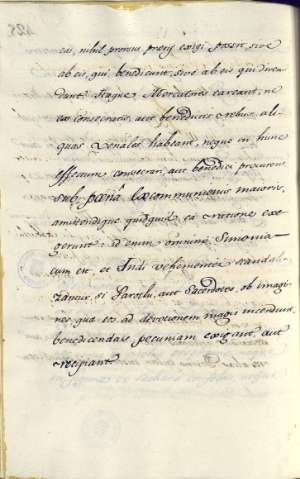 cas, nihil prorsus pretij exigi possit, sive
ab eis, qui benedicunt, sive ab eis qui
dant. Itaque Mercatores caveant, ne
ex consecratis, aut benedictis rebus, ali-
quas venales habeant, neque in hunc
effectum consecrari, aut benedici procurent
sub pœna excommunionis maioris,
amittendique quidquid ea ratione exe-
gerint: id enim omnino Simonia-
cum est, et Indi vehementer scandali-
zantur, si Parochi, aut Sacerdotes, ob imagi-
nes, qua eos ad devotionem magis incendunt,
benedicendas pecuniam exigant, aut
recipiant.